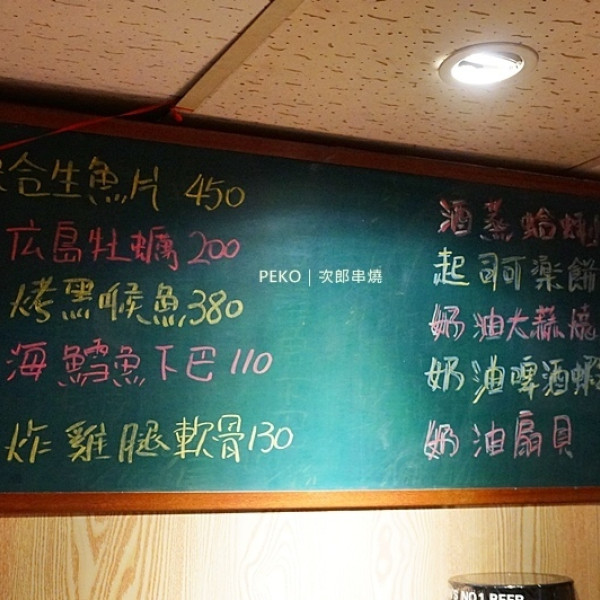 合生魚片 450
広島牡蠣 200
烤黑喉魚 380
海鱺魚下巴 110
炸雞腿軟骨 130
PEKO｜次郎串燒
酒蒸蛤蜊
起司可樂餅
奶油大蒜燒
奶油啤酒蝦
奶油扇貝
NO.1 BEER